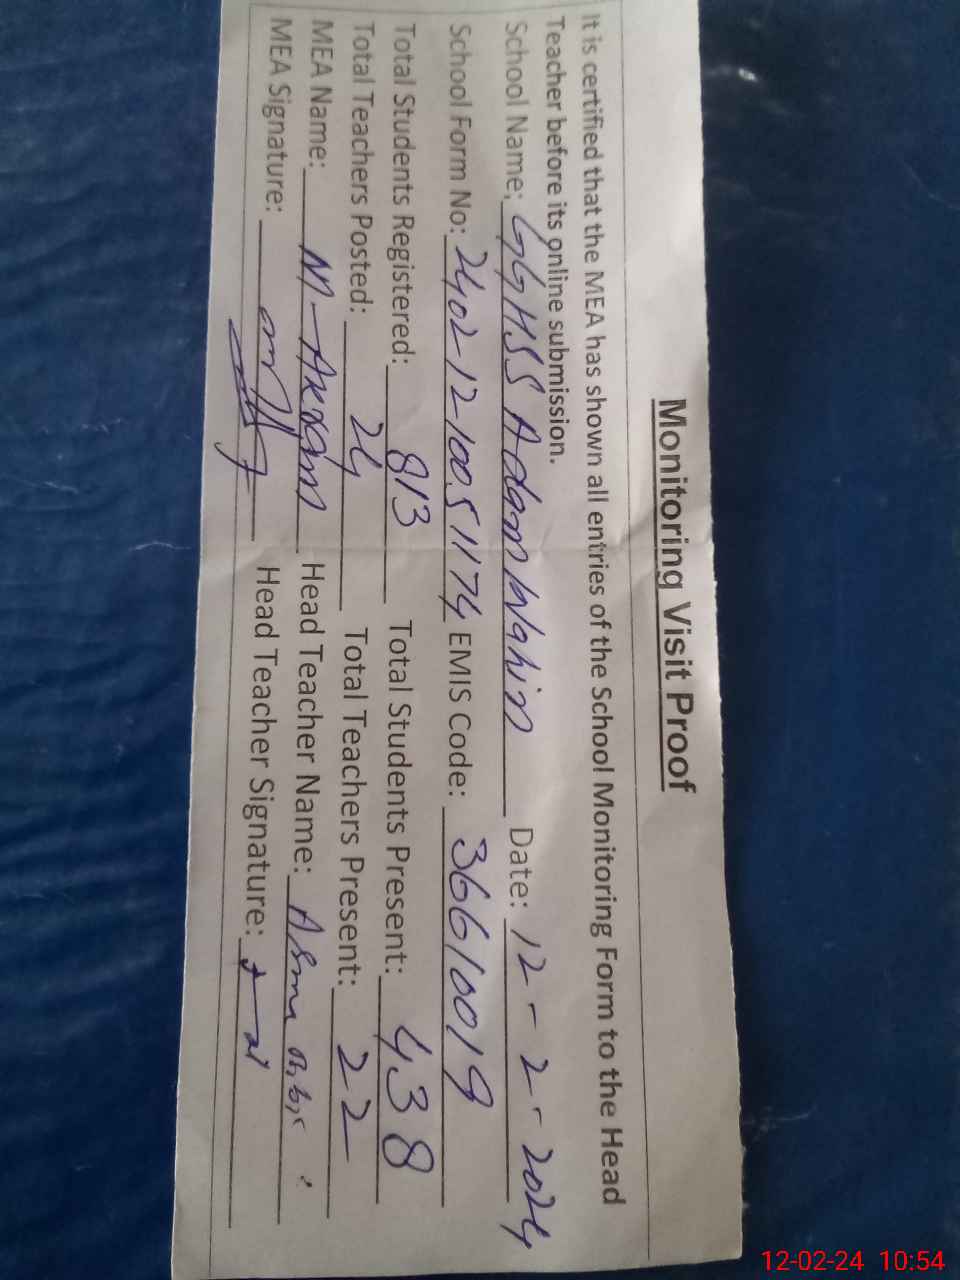 Monitoring Visit Proof
It is certified that the MEA has shown all entries of the School Monitoring Form to the Head
Teacher before its online submission.
School Name: GGHSS Adam Wahin Date: 12-2-2024
School Form No: 2402-12-10051174 EMIS Code: 36610019
Total Students Registered: 813 Total Students Present: 438
Total Teachers Posted: 24 Total Teachers Present: 22
MEA Name: M-Akram Head Teacher Name: Asma
MEA Signature: Head Teacher Signature:
12-02-24 10:54